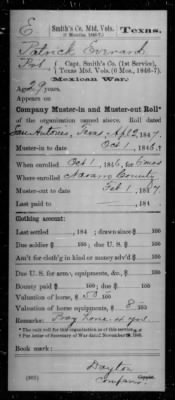 E Smith's Co. Mtd. Vols. Texas.
(6 Months, 1846-7.)
Patrick
Pvt., Capt. Smith's Co. (1st Service),
Texas Mtd. Vols. (6 Mos., 1846-7).
Mexican War.
Age 29 years.
Appears on
Company Muster-in and Muster-out Roll*
of the organization named above. Roll dated
San Antonio, Texas, Apl 2, 1847.
Muster-in to date Oct 1, 1846.
When enrolled Oct 1, 1846, for 6 mos
Where enrolled Navarro County
Muster-out to date Feb 1, 1847
Last paid to , 184 .
Clothing account:
Last settled , 184 ; drawn since $ 100
Due soldier $ 100; due U. S. $ 100
Am't for cloth'g in kind or money adv'd $ 100
Due U. S. for arms, equipments, &c., $ 100
Bounty paid $ 100; due $ 100
Valuation of horse, $ 50 100
Valuation of horse equipments, $ 8 100
Remarks: Bay horse
*The only roll for this organization as of this service
Book mark:
Dayton
Copyist.